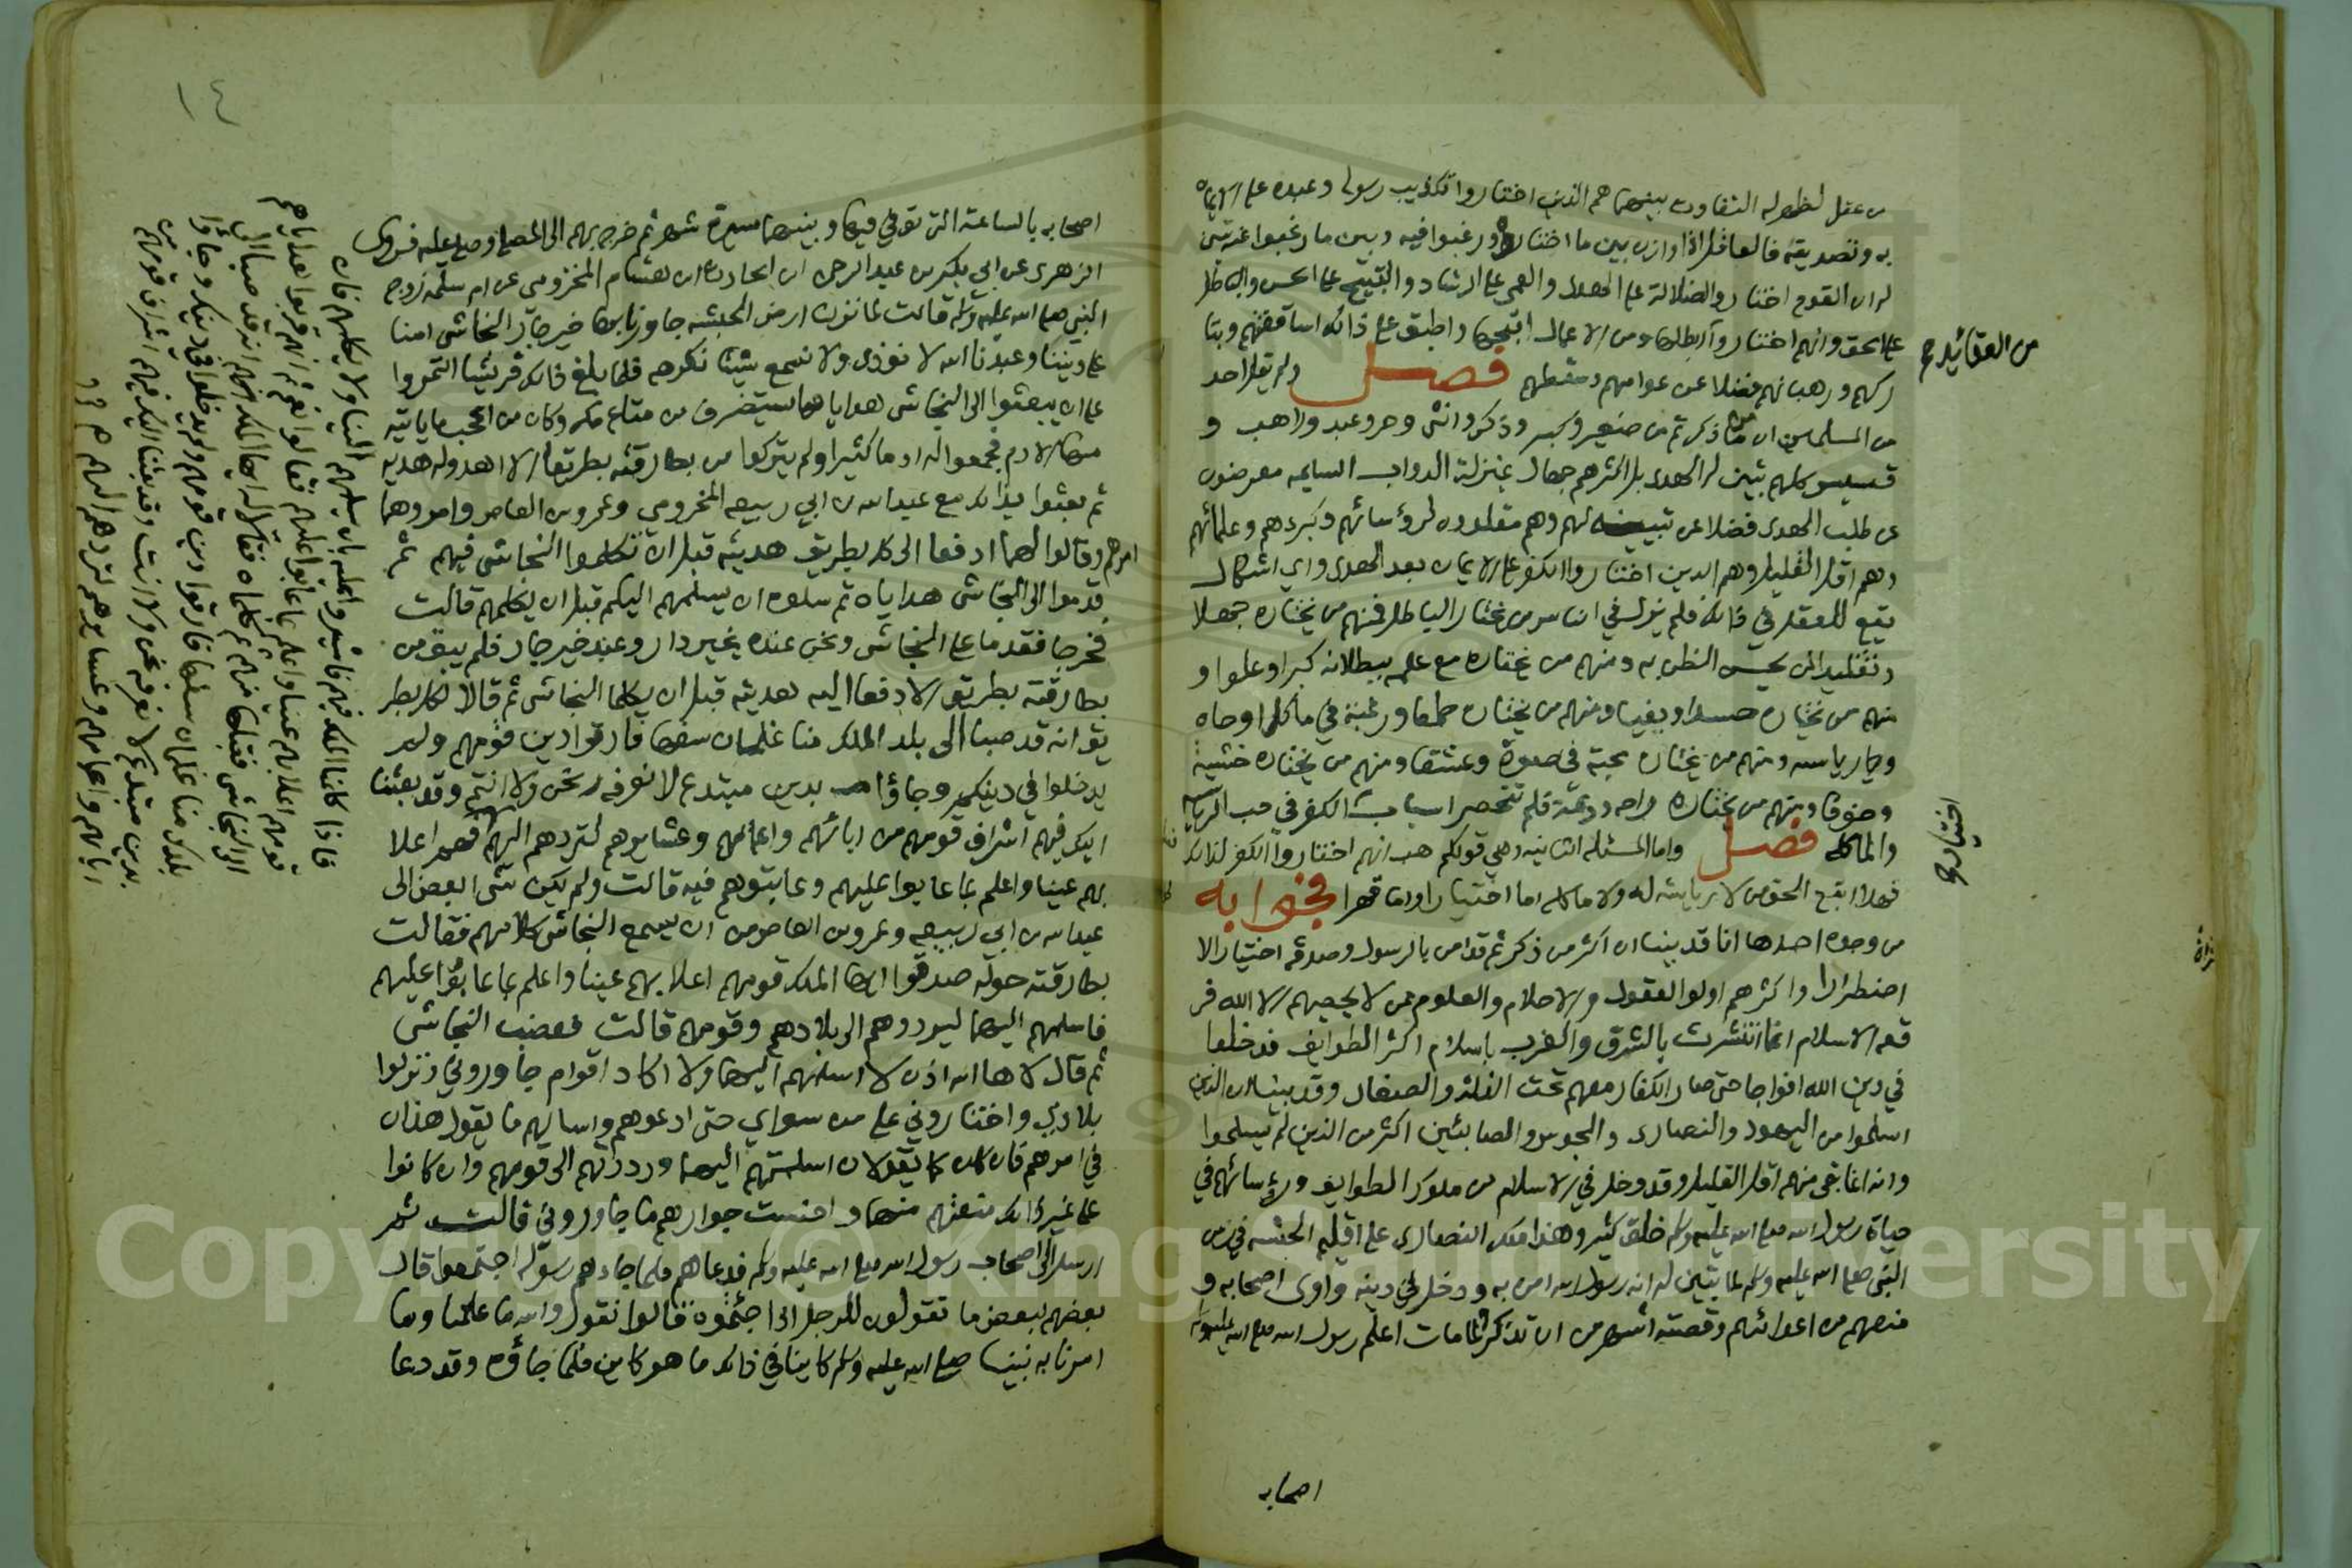 من عقل لظهر له التفاوت بينهما هم الذين اختاروا تكذيب رسوله وعبده على الايمان
به وتصديقه فالعاقل اذا وازن بين ما اختاروه ورغبوا فيه وبين ما رغبوا عنه تبين
له ان القوم اختاروا الضلالة على الهدى والعمى على الرشاد والقبيح على الحسن والباطل
على الحق وانهم اختاروا من العقائد ابطلها ومن الاعمال اقبحها واطبق على ذلك اساقفتهم وبتا
ركهم ورهبانهم فضلا عن عوامهم وسقطهم فصل ولم يقل احد
من المسلمين ان من ذكرتم من صغير وكبير وذكر وانثى وحر وعبد وراهب و
قسيس كلهم تبين له الهدى بل اكثرهم جهال بمنزلة الدواب السايمه معرضون
عن طلب الهدى فضلا عن تبيينه لهم وهم مقلدون لرؤسائهم وكبرائهم وعلمائهم
وهم اقل القليل وهم الذين اختاروا الكفر على الايمان بعد الهدى واي اشكال
يقع للعقل في ذلك فلم يزل في الناس من يختار الباطل فمنهم من يختاره جهلا
وتقليدا لمن يحسن الظن به ومنهم من يختاره مع علمه ببطلانه كبرا وعلوا و
منهم من يختاره حسدا وبغيا ومنهم من يختاره طمعا ورغبة في ماكل او جاه
او رياسه ومنهم من يختاره محبة في صورة وعشقا ومنهم من يختاره خشية
وخوفا ومنهم من يختاره راحه ودعة فلم تنحصر اسباب الكفر في حب الرياسه
والماكله فصل واما المسئله الثانيه وهي قولكم هب انهم اختاروا الكفر لذلك
فهلا اتبع الحق من لا رياسة له ولا ماكله اما اختيارا واما قهرا فجوابه
من وجوه احدها انا قد بينا ان اكثر من ذكرتم قد امن بالرسول وصدقه اختيارا لا
اضطرارا واكثرهم اولوا العقول والاحلام والعلوم ممن لا يحصيهم الا الله فر
قعة الاسلام انما انتشرت بالشرق والغرب باسلام اكثر الطوايف فدخلوا
في دين الله افواجا حتى صار الكفار معهم تحت الذلة والصغار وقد بينا ان الذين
اسلموا من اليهود والنصارى والمجوس والصابئين اكثر من الذين لم يسلموا
وانه انما بقي منهم اقل القليل وقد دخل في الاسلام من ملوك الطوايف ورؤسائهم في
حياة رسول الله صلى الله عليه وسلم خلق كثير وهذا ملك النصارى على اقليم الحبشه في زمن
النبي صلى الله عليه وسلم لما تبين له انه رسول الله امن به ودخل في دينه واوى اصحابه و
منعهم من اعدائهم وقصته اشهر من ان تذكر ولما مات اعلم رسول الله صلى الله عليه وسلم
اصحابه
من العقائد صح
اختيار صح
١٤
اصحابه بالساعة التي توفي فيها وبينهما مسيرة شهر ثم خرج بهم الى المصلى وصلى عليه فروى
الزهري عن ابي بكر بن عبد الرحمن ابن الحارث ابن هشام المخزومي عن ام سلمه زوج
النبي صلى الله عليه وسلم قالت لما نزلنا ارض الحبشه جاورنا بها خير جار النجاشي امنا
على ديننا وعبدنا الله لا نوذى ولا نسمع شيئا نكرهه فلما بلغ ذلك قريشا ائتمروا
على ان يبعثوا الى النجاشي هدايا مما يستظرف من متاع مكه وكان من اعجب ما ياتيه
منها الادم فجمعوا له ادما كثيرا ولم يتركوا من بطارقته بطريقا الا اهدوا له هديه
ثم بعثوا بذلك مع عبد الله بن ابي ربيعه المخزومي وعمرو بن العاص وامروهما
امرهم وقالوا لهما ادفعا الى كل بطريق هديته قبل ان تكلموا النجاشي فيهم ثم
قدموا الى النجاشي هداياه ثم سلوه ان يسلمهم اليكم قبل ان يكلمهم قالت
فخرجا فقدما على النجاشي ونحن عنده بخير دار وعند خير جار فلم يبق من
بطارقته بطريق الا دفعا اليه هديته قبل ان يكلما النجاشي ثم قالا لكل بطر
يق انه قد صبا الى بلد الملك منا غلمان سفها فارقوا دين قومهم ولم
يدخلوا في دينكم وجاؤا بدين مبتدع لا نعرفه نحن ولا انتم وقد بعثنا
اليك فيهم اشراف قومهم من ابائهم واعمامهم وعشايرهم لتردهم اليهم فهم اعلا
بهم عينا واعلم بما عابوا عليهم وعاتبوهم فيه قالت ولم يكن شي ابغض الى
عبد الله بن ابي ربيعه وعمرو بن العاص من ان يسمع النجاشي كلامهم فقالت
بطارقته حوله صدقوا ايها الملك قومهم اعلا بهم عينا واعلم بما عابوا عليهم
فاسلمهم اليهما ليردوهم الى بلادهم وقومهم قالت فغضب النجاشي
ثم قال لا ها الله اذن لا اسلمهم اليهما ولا اكاد اقوام جاوروني ونزلوا
بلادي واختاروني على من سواي حتى ادعوهم واسالهم ما يقول هذان
في امرهم فان كان كما يقولان اسلمتهم اليهما ورددتهم الى قومهم وان كانوا
على غير ذلك منعتهم منهما واحسنت جوارهم ما جاوروني قالت ثم
ارسل الى اصحاب رسول الله صلى الله عليه وسلم فدعاهم فلما جاءهم رسوله اجتمعوا قال
بعضهم لبعض ما تقولون للرجل اذا جئتموه قالوا نقول والله ما علمنا وما
امرنا به نبينا صلى الله عليه وسلم كاينا في ذلك ما هو كاين فلما جاؤه وقد دعا
فاذا كلمنا الملك فيهم فاشيروا عليه بان يسلمهم الينا ولا يكلمهم فان
قومهم اعلا بهم عينا واعلم بما عابوا عليهم فقالوا نعم ثم انهم قربوا هداياهم
الى النجاشي فقبلها منهم ثم كلماه فقالا له ايها الملك انه قد صبا الى
بلدك منا غلمان سفها فارقوا دين قومهم ولم يدخلوا في دينك وجاؤا
بدين مبتدع لا نعرفه نحن ولا انت وقد بعثنا اليك فيهم اشراف قومهم من
ابائهم واعمامهم وعشايرهم لتردهم اليهم